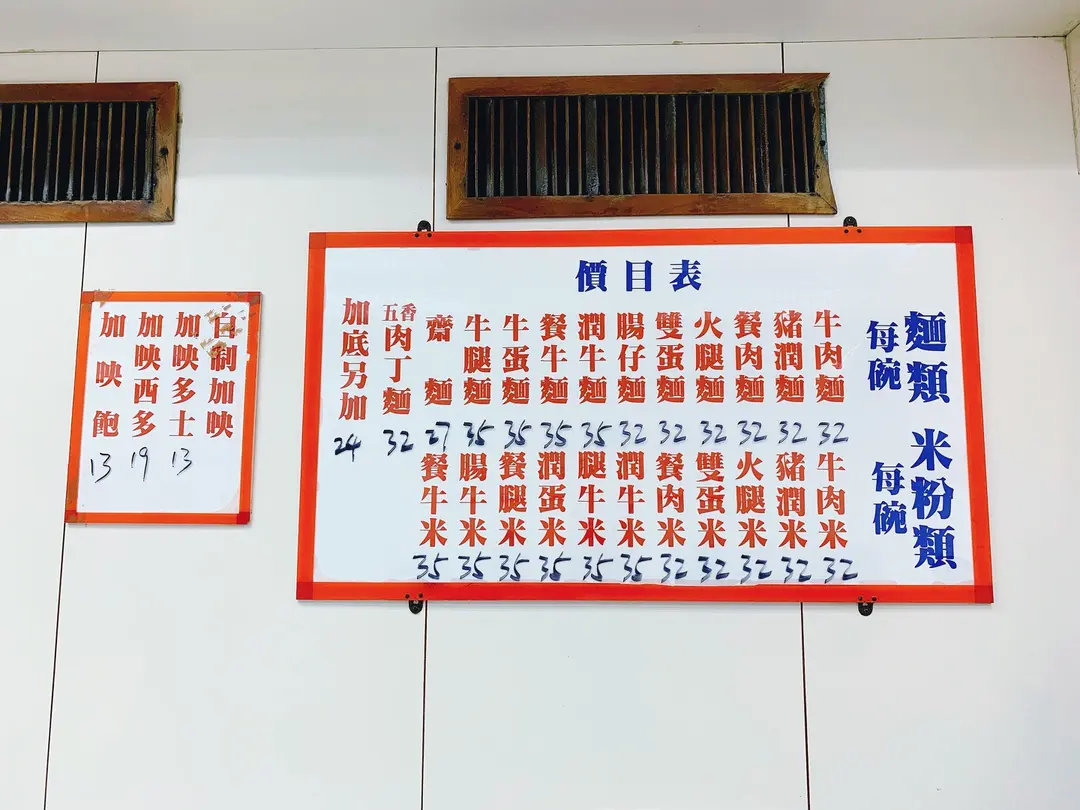 價目表
麵類 每碗
牛肉麵 32
豬潤麵 32
餐肉麵 32
火腿麵 32
雙蛋麵 32
腸仔麵 32
潤牛麵 35
餐牛麵 35
牛蛋麵 35
牛腿麵 35
齋麵 27
五香肉丁麵 32
加底另加 24
米粉類 每碗
牛肉米 32
豬潤米 32
火腿米 32
雙蛋米 32
餐肉米 32
潤牛米 35
腿牛米 35
潤蛋米 35
餐腿米 35
腸牛米 35
餐牛米 35
自制加映
加映多士 13
加映西多 19
加映飽 13